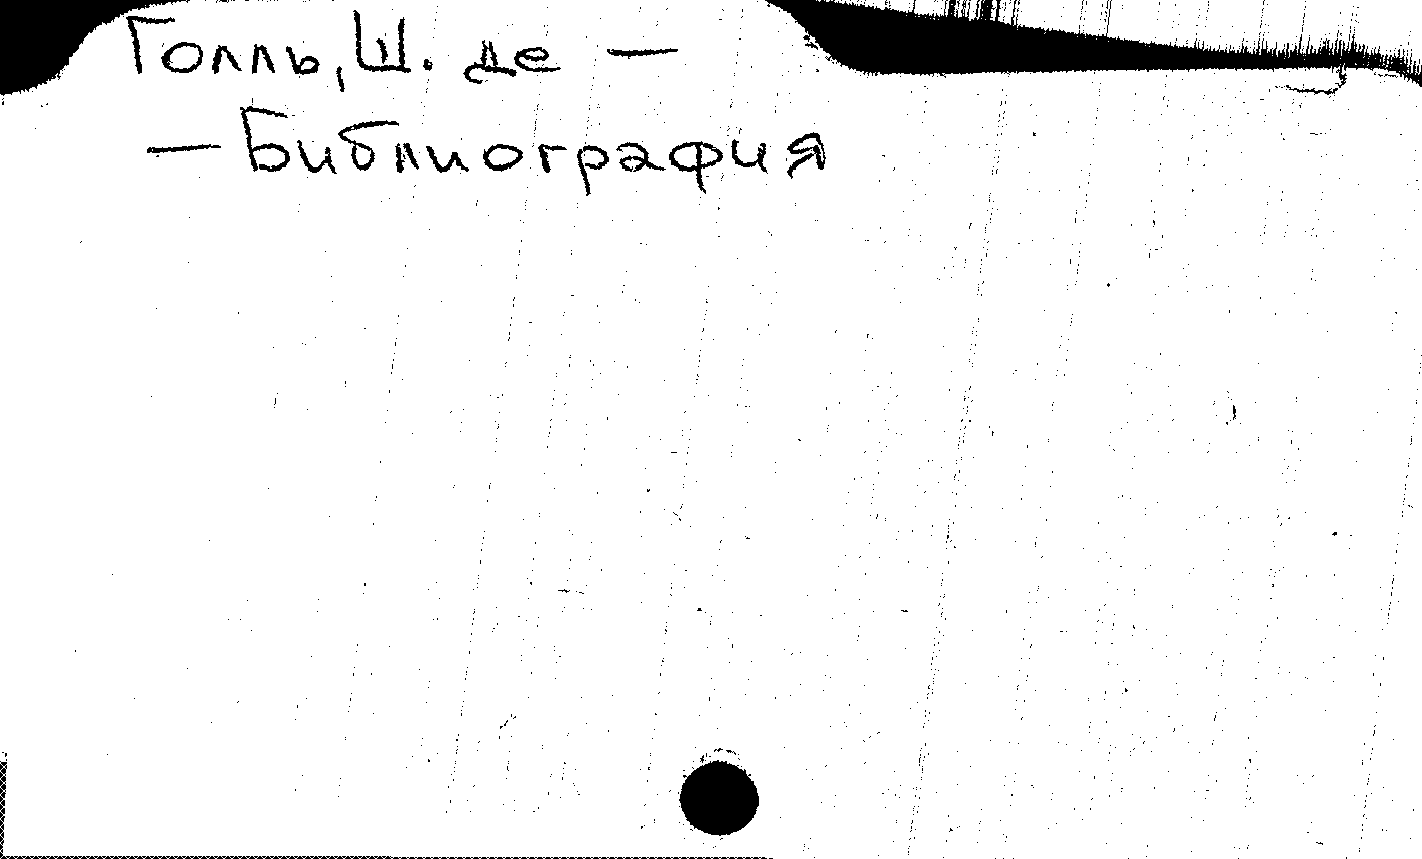 Голль, Ш. де —
— Библиография